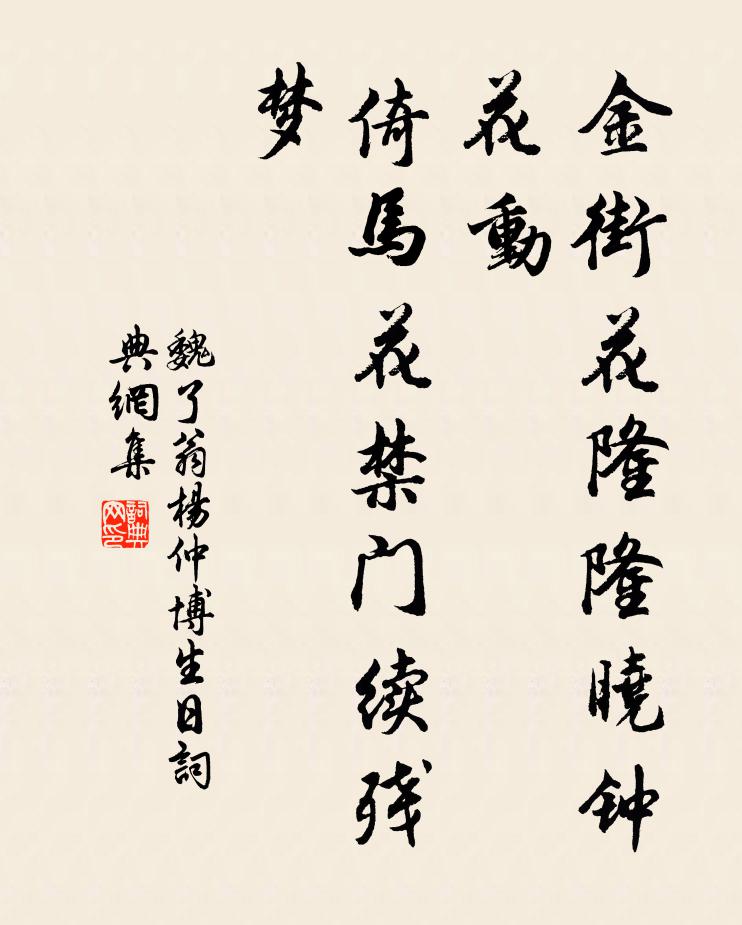 金街花隆隆曉钟
花動
倚馬花禁门续残
梦
魏了翁楊仲博生日詞
典網集
詞典网印